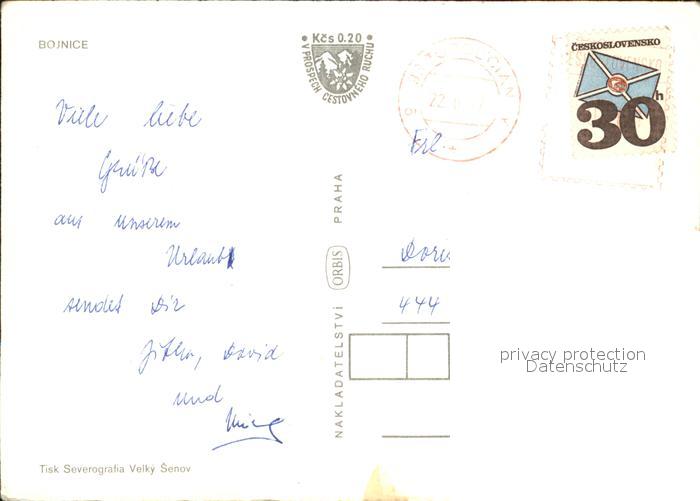 BOJNICE
Kčs 0.20
V PROSPĚCH CESTOVNÉHO RUCHU
ČESKOSLOVENSKO
30 h
Viele liebe
Grüße
aus unserem
Urlaub
sendet Dir
Jitka, David
und
Frl.
Doris
444
NAKLADATELSTVÍ ORBIS PRAHA
privacy protection
Datenschutz
Tisk Severografia Velký Šenov